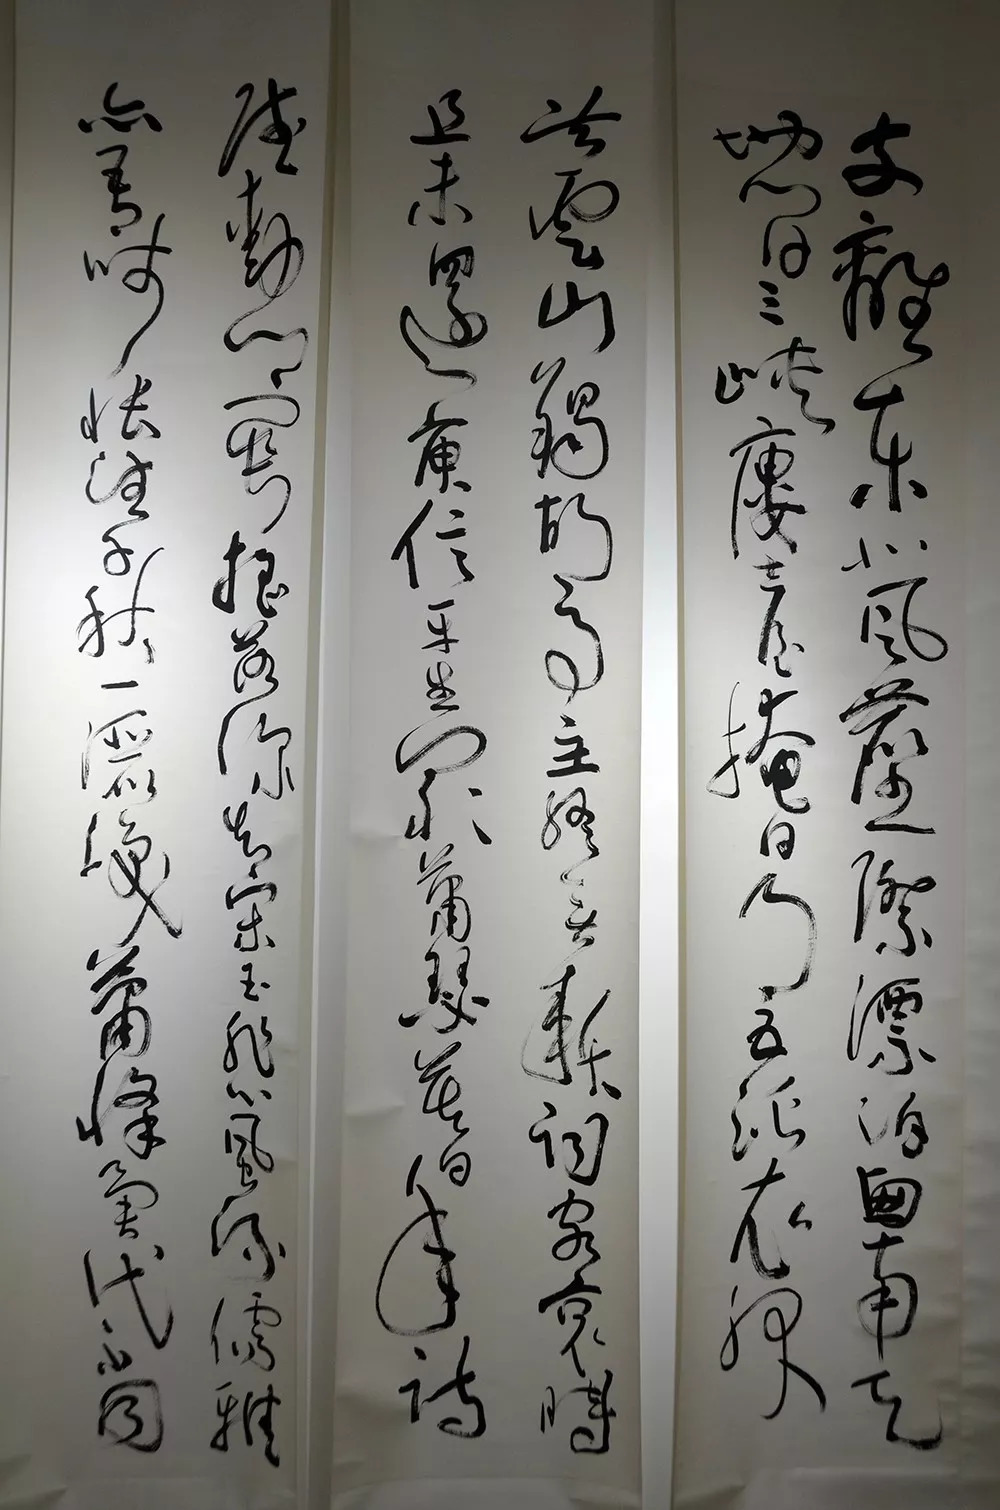 支離東北風塵際漂泊西南天
地間三峽樓臺掩日月五溪衣服
共雲山羯胡事主終無賴詞客哀時
且未還庾信平生最蕭瑟暮年詩
賦動江關搖落深知宋玉悲風流儒雅
亦吾師悵望千秋一灑淚蕭條異代不同